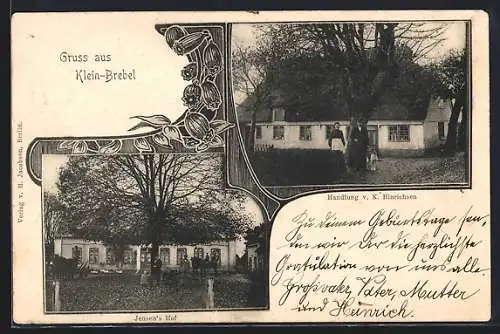 Gruss aus
Klein-Brebel
Verlag v. H. Jacobsen, Berlin.
Handlung v. K. Hinrichsen
Jensen's Hof
Zu deinem Geburtstage sen,
den wir dir die herzlichste
Gratulation von uns alle.
Großvater, Vater, Mutter
und Hinrich.